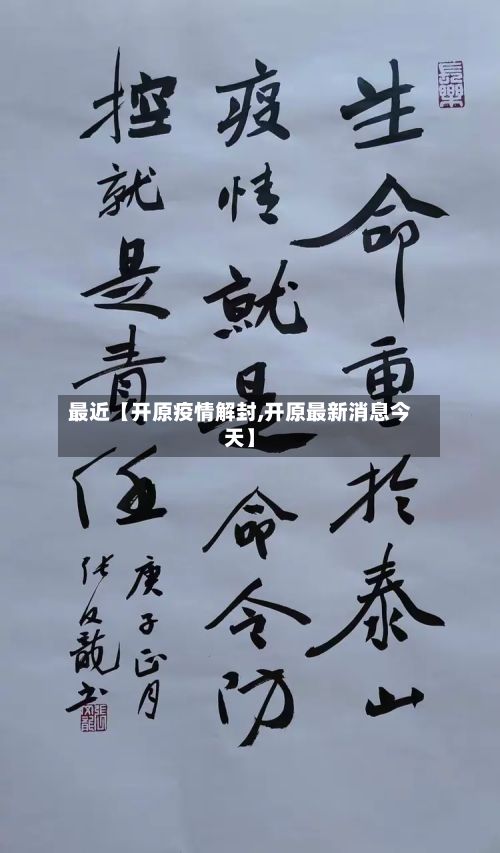 生命重於泰山
疫情就是命令防
控就是责任
庚子正月
张文龍书
長樂
最近【开原疫情解封,开原最新消息今
天】